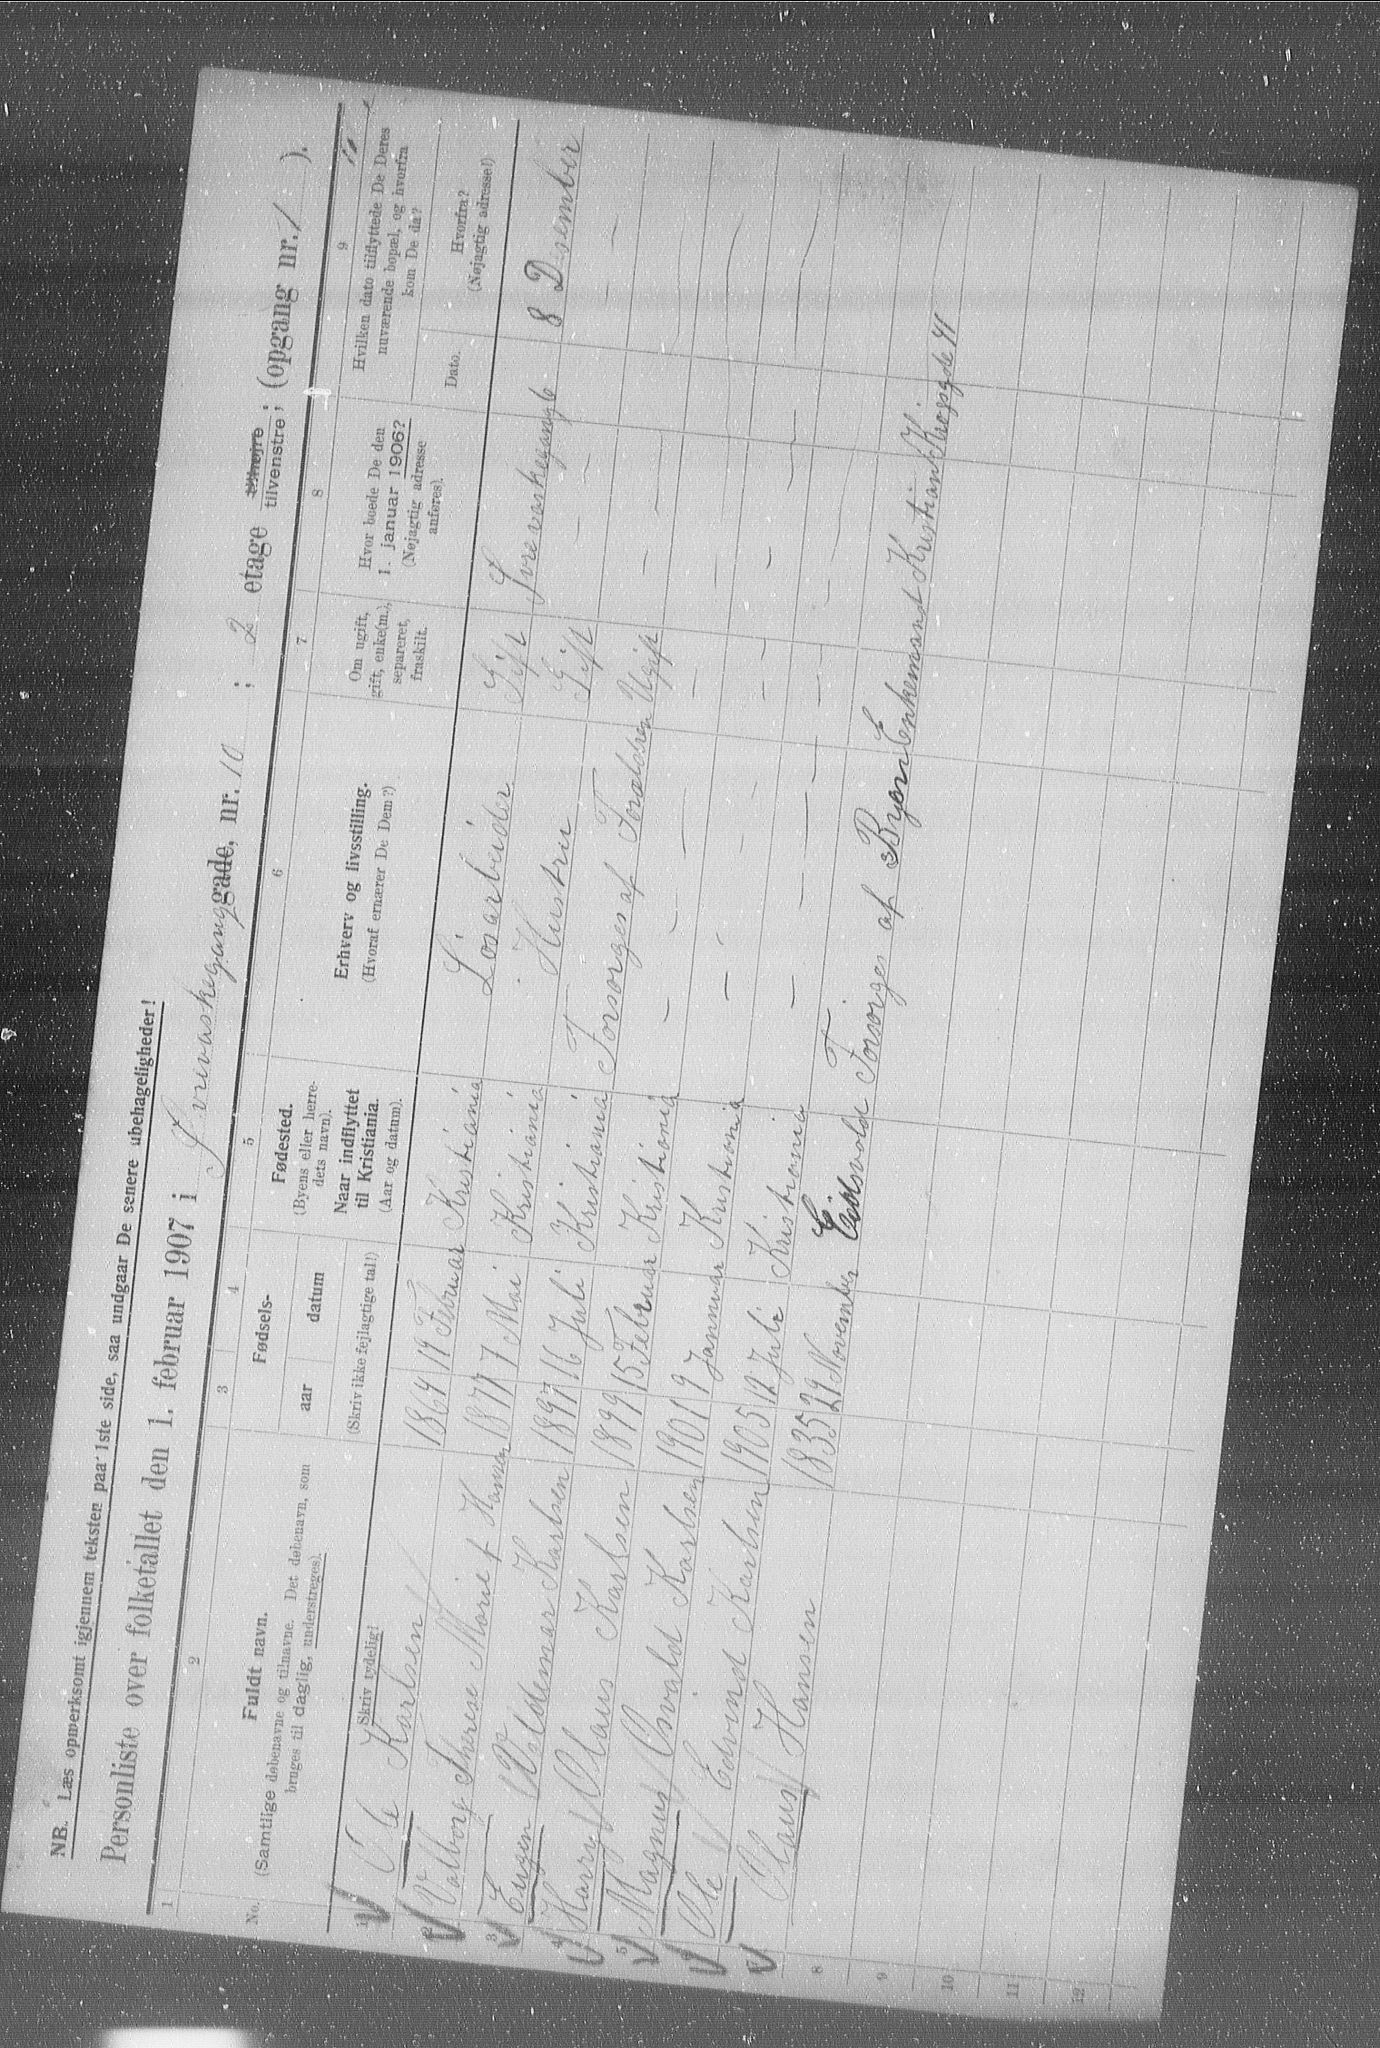 NB. Læs opmerksomt igjennem teksten paa 1ste side, saa undgaar De senere ubehageligheder!
Personliste over folketallet den 1. februar 1907 i Svrivaskegang gade, nr. 10 ; 2 etage tilhøjre, tilvenstre, (opgang nr. / ).
1 2 3 4 5 6 7 8 9
No.
Fuldt navn.
(Samtlige døbenavne og tilnavne. Det døbenavn, som
bruges til daglig, understreges).
Skriv tydelig!
Fødsels-
aar datum
(Skriv ikke fejlagtige tal!)
Fødested.
(Byens eller herre-
dets navn).
Naar indflyttet
til Kristiania.
(Aar og datum).
Erhverv og livsstilling.
(Hvoraf ernærer De Dem?)
Om ugift,
gift, enke(m.),
separeret,
fraskilt.
Hvor boede De den
1. januar 1906?
(Nøjagtig adresse
anføres).
Hvilken dato tilflyttede De Deres
nuværende bopæl, og hvorfra
kom De da?
Dato.
Hvorfra?
(Nøjagtig adresse!)
1 Ole Karlsen 1864 19 Februar Kristiania Lösarbeider Gift Svrevaskegang 6 8 Desember
2 Valborg Therese Marie f Hansen 1877 7 Mai Kristiania Hustru Gift — — —
3 Eugen Valdemar Karlsen 1897 16 Juli Kristiania Forsørges af Foraldren Ugift — —
4 Harry Olaus Karlsen 1899 15 Februar Kristiania — — — —
5 Magnus Osvald Karlsen 1901 9 Januar Kristiania — — — — —
6 Ole Edvind Karlsen 1905 12 Juli Kristiania — — — — — — —
7 Olaus Hansen 1835 29 November Eidsvold Forsørges af Byen Enkemand Kristian Krogsgde 41
8
9
10
11
12